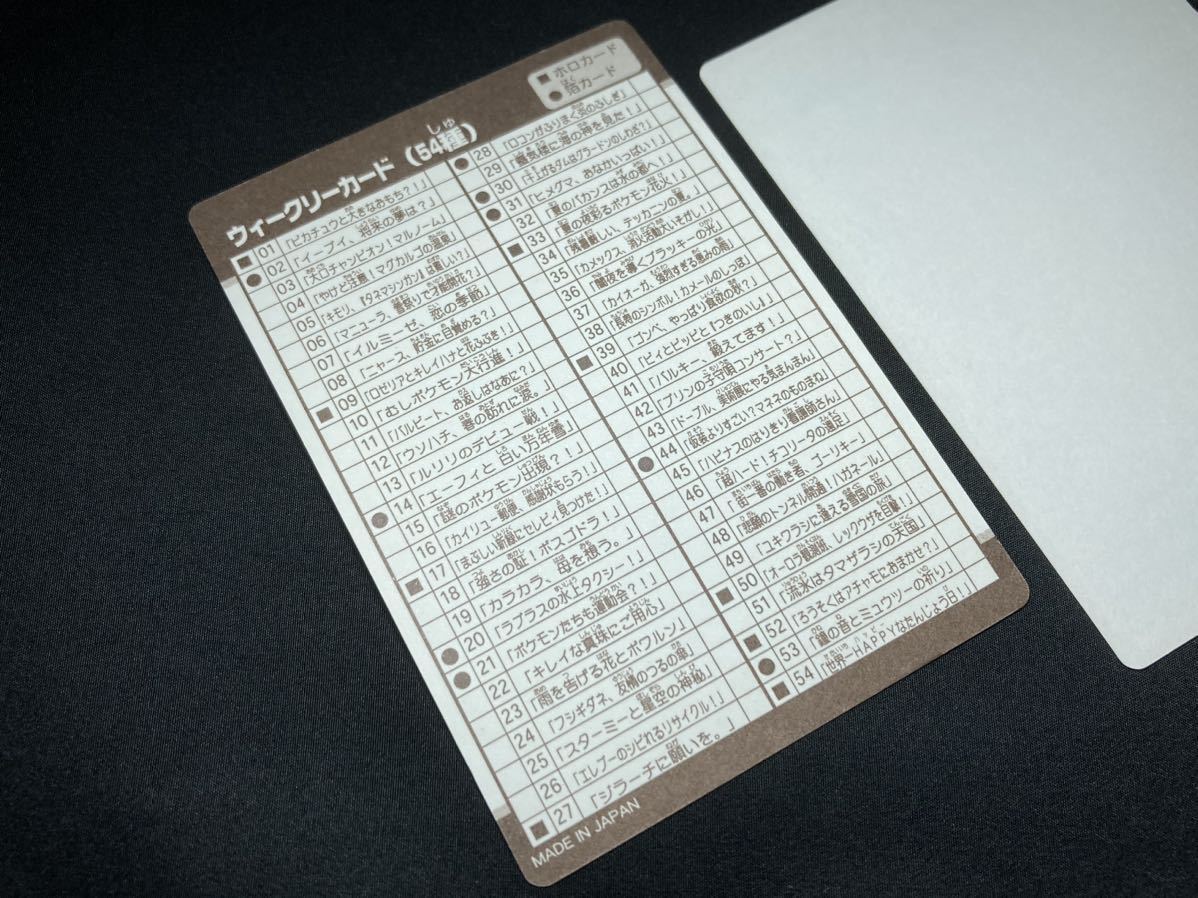 ウィークリーカード（54種）
■ ホロカード
● 箔カード
■ 01 「ピカチュウと大きなおもち？！」
● 02 「イーブイ、将来の夢は？」
03 「大口チャンピオン！マルノーム」
04 「やけど注意！マグカルゴの温泉」
05 「キモリ、『タネマシンガン』は難しい？」
06 「マニューラ、雪祭りで才能開花？」
07 「イルミーゼ、恋の季節」
08 「ニャース、貯金に目覚める？」
09 「ロゼリアとキレイハナと花ふぶき！」
■ 10 「むしポケモン大行進！」
11 「バルビート、お返しはなあに？」
12 「ウソハチ、春の訪れに涙。」
13 「ルリリのデビュー戦！」
14 「エーフィと白い万年雪」
● 15 「謎のポケモン出現？！」
16 「カイリュー郵便、感謝状もらう！」
17 「まぶしい新緑にセレビィ見つけた！」
■ 18 「強さの証！ボスゴドラ！」
19 「カラカラ、母を想う。」
20 「ラプラスの水上タクシー！」
● 21 「ポケモンたちも運動会？！」
● 22 「キレイな真珠にご用心」
23 「雨を告げる花とポワルン」
24 「フシギダネ、友情のつるの傘」
25 「スターミーと星空の神秘」
26 「エレブーのシビれるリサイクル！」
■ 27 「ジラーチに願いを。」
● 28 「ロコンがふりまく炎のふしぎ」
29 「蜃気楼に海の神を見た！」
● 30 「干上がるダムはグラードンのしわざ？」
● 31 「ヒメグマ、おなかいっぱい！」
32 「夏のバカンスは水の都へ！」
■ 33 「夏の夜彩るポケモン花火！」
34 「残暑厳しい、テッカニンの夏。」
35 「カメックス、消火活動大いそがし！」
36 「闇夜を導くブラッキーの光」
37 「カイオーガ、強烈すぎる恵みの雨」
38 「長寿のシンボル！カメールのしっぽ」
■ 39 「ゴンベ、やっぱり食欲の秋？」
40 「ピィとピッピと『つきのいし』」
41 「バルキー、鍛えてます！」
42 「プリンの子守唄コンサート？」
43 「ドーブル、美術展にやる気まんまん」
● 44 「仮装よりすごい？マネネのものまね」
45 「ハピナスのはりきり看護師さん」
46 「超ハード！チコリータの遠足」
47 「街一番の働き者、ゴーリキー」
48 「悲願のトンネル開通！ハガネール」
49 「ユキワラシに逢える雪国の旅」
■ 50 「オーロラ観測班、レックウザを目撃！」
51 「流氷はタマザラシの天国」
■ 52 「ろうそくはアチャモにおまかせ？」
● 53 「鐘の音とミュウツーの祈り」
■ 54 「世界一HAPPYなたんじょう日！」
MADE IN JAPAN